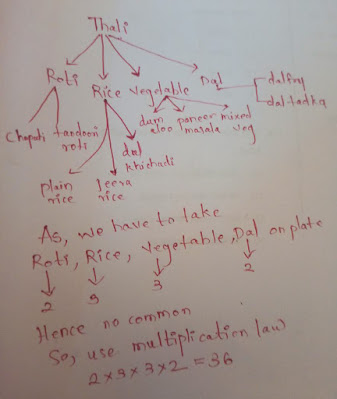 Thali
Roti Rice Vegetable Dal
dalfry
dal tadka
Chapati tandoori roti
dum aloo paneer masala mixed veg
dal khichadi
plain rice Jeera rice
As, we have to take
Roti, Rice, Vegetable, Dal on plate
2 3 3 2
Hence no common
So, use multiplication law
2x3x3x2 = 36